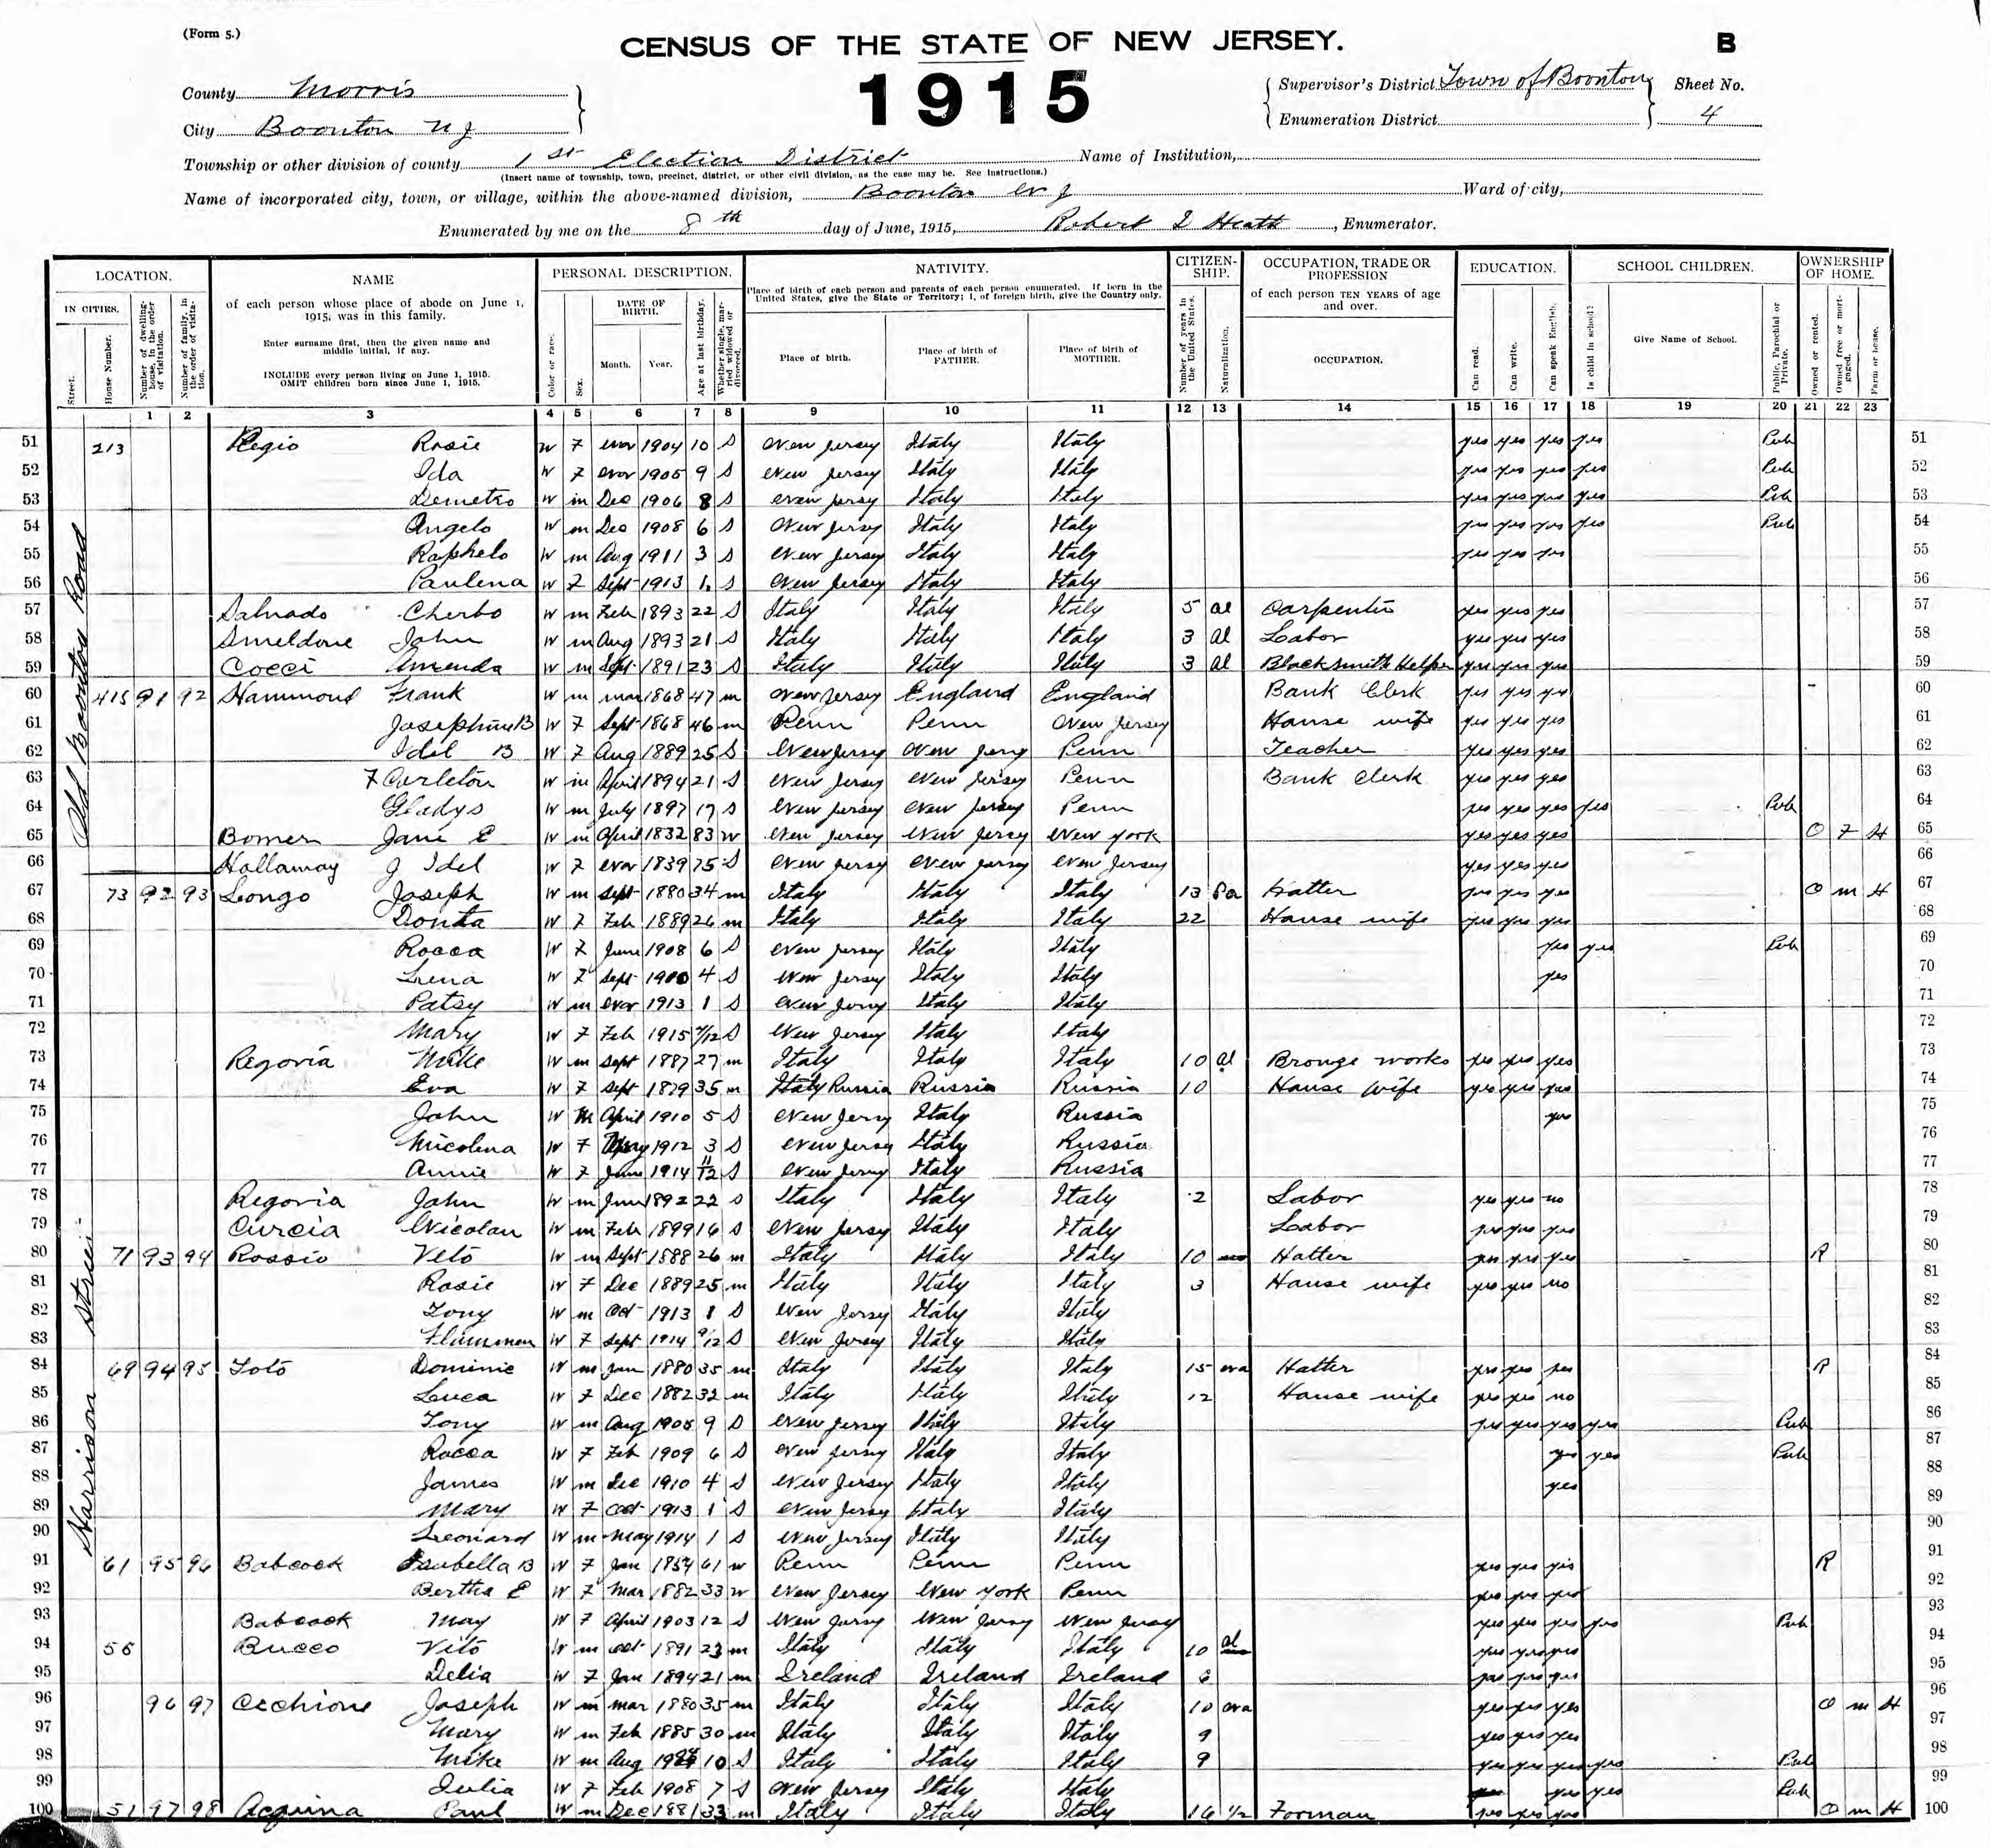 (Form 5.)
CENSUS OF THE STATE OF NEW JERSEY.
B
1915
County Morris
City Boonton N J
Supervisor's District Town of Boonton
Enumeration District
Sheet No.
4
Township or other division of county 1 st Election District
Name of Institution,
(Insert name of township, town, precinct, district, or other civil division, as the case may be. See instructions.)
Name of incorporated city, town, or village, within the above-named division, Boonton N J
Ward of city,
Enumerated by me on the 8 th day of June, 1915, Robert I Heath, Enumerator.
LOCATION.
IN CITIES.
Street.
House Number.
Number of dwelling-house, in the order of visitation.
Number of family, in the order of visitation.
NAME
of each person whose place of abode on June 1, 1915, was in this family.
Enter surname first, then the given name and middle initial, if any.
INCLUDE every person living on June 1, 1915.
OMIT children born since June 1, 1915.
PERSONAL DESCRIPTION.
Color or race.
Sex.
DATE OF BIRTH.
Month.
Year.
Age at last birthday.
Whether single, married widowed or divorced.
NATIVITY.
Place of birth of each person and parents of each person enumerated. If born in the United States, give the State or Territory; I, of foreign birth, give the Country only.
Place of birth.
Place of birth of FATHER.
Place of birth of MOTHER.
CITIZENSHIP.
Number of years in the United States.
Naturalization.
OCCUPATION, TRADE OR PROFESSION
of each person TEN YEARS of age and over.
OCCUPATION.
EDUCATION.
Can read.
Can write.
Can speak English.
SCHOOL CHILDREN.
Is child in school?
Give Name of School.
Public, Parochial or Private.
OWNERSHIP OF HOME.
Owned or rented.
Owned free or mortgaged.
Farm or house.
1 2 3 4 5 6 7 8 9 10 11 12 13 14 15 16 17 18 19 20 21 22 23
Old Boonton Road
51 213 Regio Rosie W F Nov 1904 10 S New Jersey Italy Italy yes yes yes yes Pub 51
52 Ida W F Nov 1905 9 S New Jersey Italy Italy yes yes yes yes Pub 52
53 Demetro W m Dec 1906 8 S New Jersey Italy Italy yes yes yes yes Pub 53
54 Angelo W m Dec 1908 6 S New Jersey Italy Italy yes yes yes yes Pub 54
55 Raphelo W m Aug 1911 3 S New Jersey Italy Italy yes yes yes 55
56 Paulena W F Sept 1913 1 S New Jersey Italy Italy 56
57 Salvado Cherbo W m Feb 1893 22 S Italy Italy Italy 5 al Carpenter yes yes yes 57
58 Smeldone John W m Aug 1893 21 S Italy Italy Italy 3 al Labor yes yes yes 58
59 Cocci Amenda W m Sept 1891 23 S Italy Italy Italy 3 al Blacksmith Helper yes yes yes 59
60 415 91 92 Hammond Frank W m mar 1868 47 m New Jersey England England Bank Clerk yes yes yes 60
61 Josephine B W F Sept 1868 46 m Penn Penn New Jersey House wife yes yes yes 61
62 Idel B W F Aug 1889 25 S New Jersey New Jersey Penn Teacher yes yes yes 62
63 F Carleton W m April 1894 21 S New Jersey New Jersey Penn Bank Clerk yes yes yes 63
64 Gladys W m July 1897 17 S New Jersey New Jersey Penn yes yes yes yes Pub 64
65 Bomer Jane E W m April 1832 83 W New Jersey New Jersey New York yes yes yes O F H 65
66 Hallaway J Idel W F Nov 1839 75 S New Jersey New Jersey New Jersey yes yes yes 66
Harrison Street
67 73 92 93 Longo Joseph W m Sept 1880 34 m Italy Italy Italy 13 Pa Hatter yes yes yes O m H 67
68 Donta W F Feb 1889 26 m Italy Italy Italy 22 House wife yes yes yes 68
69 Rocca W F June 1908 6 S New Jersey Italy Italy yes yes Pub 69
70 Lena W F Sept 1910 4 S New Jersey Italy Italy yes 70
71 Patsy W m Nov 1913 1 S New Jersey Italy Italy 71
72 Mary W F Feb 1915 4/12 S New Jersey Italy Italy 72
73 Regoria Mike W m Sept 1887 27 m Italy Italy Italy 10 al Bronze works yes yes yes 73
74 Eva W F Sept 1879 35 m Russia Russia Russia 10 House wife yes yes yes 74
75 John W m April 1910 5 S New Jersey Italy Russia yes 75
76 Nicolena W F May 1912 3 S New Jersey Italy Russia 76
77 Annie W F June 1914 11/12 S New Jersey Italy Russia 77
78 Regoria John W m June 1892 22 S Italy Italy Italy 2 Labor yes yes no 78
79 Curcia Nicolau W m Feb 1899 16 S New Jersey Italy Italy Labor yes yes yes 79
80 71 93 94 Rossio Veto W m Sept 1888 26 m Italy Italy Italy 10 Hatter yes yes yes R 80
81 Rosie W F Dec 1889 25 m Italy Italy Italy 3 House wife yes yes no 81
82 Tony W m Oct 1913 1 S New Jersey Italy Italy 82
83 W F Sept 1914 9/12 S New Jersey Italy Italy 83
84 69 94 95 Toto Dominic W m Jan 1880 35 m Italy Italy Italy 15 na Hatter yes yes yes R 84
85 Luca W F Dec 1882 32 m Italy Italy Italy 12 House wife yes yes no 85
86 Tony W m Aug 1905 9 S New Jersey Italy Italy yes yes yes yes Pub 86
87 Rocca W F Feb 1909 6 S New Jersey Italy Italy yes yes Pub 87
88 James W m Dec 1910 4 S New Jersey Italy Italy yes 88
89 Mary W F Oct 1913 1 S New Jersey Italy Italy 89
90 Leonard W m May 1914 1 S New Jersey Italy Italy 90
91 61 95 96 Babcock Isabella B W F Jan 1854 61 W Penn Penn Penn yes yes yes R 91
92 Bertha E W F Mar 1882 33 W New Jersey New York Penn yes yes yes 92
93 Babcock May W F April 1903 12 S New Jersey New Jersey New Jersey yes yes yes yes Pub 93
94 55 Bucco Vito W m Oct 1891 23 m Italy Italy Italy 10 al yes yes yes 94
95 Delia W F Jan 1894 21 m Ireland Ireland Ireland 6 yes yes yes 95
96 96 97 Cechione Joseph W m mar 1880 35 m Italy Italy Italy 10 na yes yes yes O m H 96
97 Mary W m Feb 1885 30 m Italy Italy Italy 9 yes yes yes 97
98 Mike W m Aug 10 S Italy Italy Italy 9 yes yes yes yes Pub 98
99 Julia W F Feb 1908 7 S New Jersey Italy Italy yes yes Pub 99
100 51 97 98 Acquina Paul W m Dec 1881 33 m Italy Italy Italy 16 1/2 Forman yes yes yes O m H 100